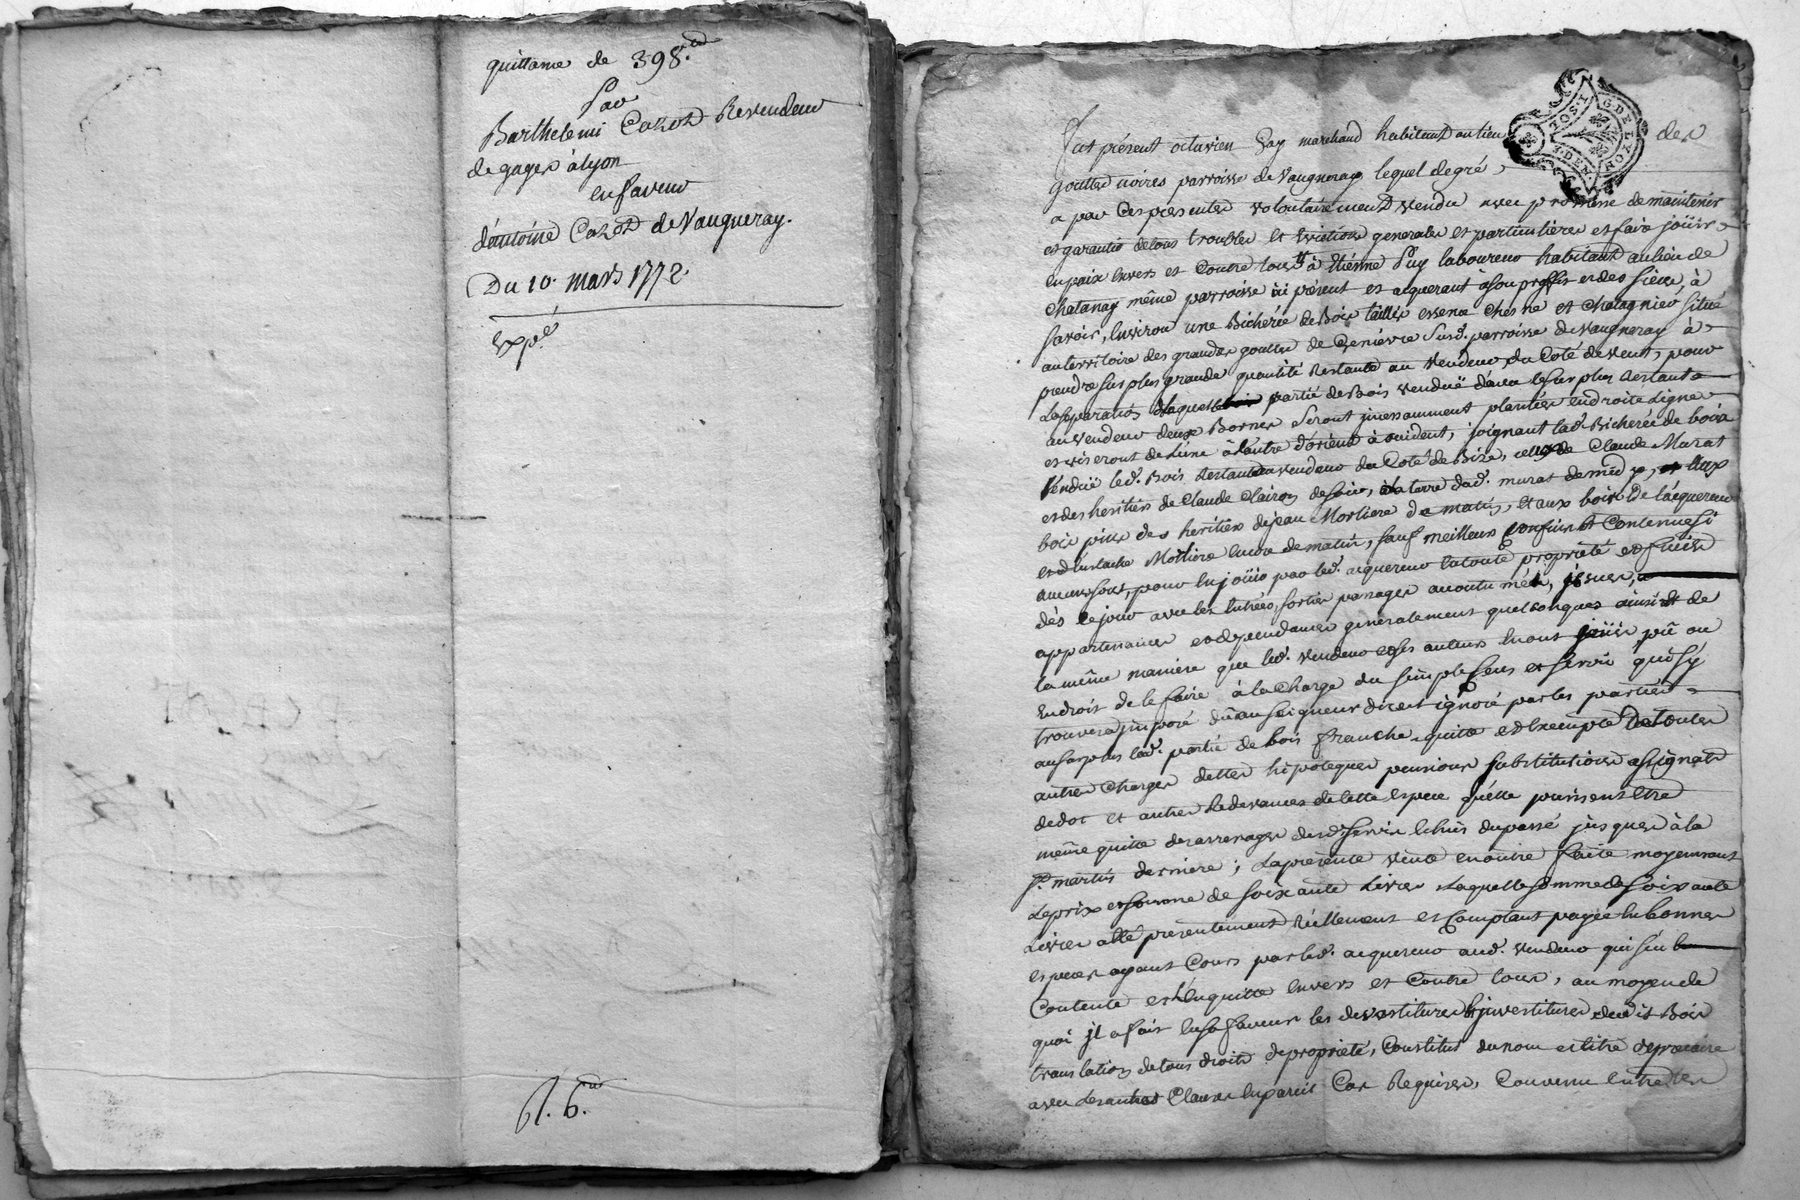 quittance de 398.ᵗᵗ
Par
Barthelemi Cazot Revendeur
de gages à lyon
en faveur
d'antoine Cazot de Vaugneray.
Du 10. mars 1772
Expé
6ˡ. 6.ˢ
G. DE LYON
Fut présent octavien Gay marchand habitant au lieu des
gouttes noires parroisse de Vaugneray lequel de gré,
a par Ces presentes volontairement vendu avec promesse de maintenir
et garantir de tous troubles et evictions generales et particulieres et faire joüir
en paix envers et Contre tous à Etiénne Puy laboureur habitant au lieu de
Chatanay même parroisse ici présent et acquerant à son proffit et des siens, à
savoir, Environ une Bicherée de Bois taillis essence chesne et Chatagnier situé
au territoire des grandes gouttes de Genievre susd. parroisse de Vaugneray à
prendre sur plus grande quantité restante au vendeur du Coté de vent, pour
la separation de laquelle partie de Bois venduë d'avec le surplus restant
au vendeur deux Bornes seront incessamment plantées en droite Ligne
et viseront de l'une à l'autre d'orient à occident, joignant lad. Bicherée de bois
venduë led. Bois restant au vendeur du Coté de Bize, celuy de Claude Murat
et des heritiers de Claude Clairon de soir, à la terre dud. murat de midy, et aux
bois pins des heritiers de jean Morliere de matin, et aux bois de l'acquereur
et d'Eustache Morliere encore de matin, sauf meilleurs confins et Contenue si
aucuns sont, pour en joüir par led. acquereur en toute propriété et fruits
dès ce jour avec les entrées, sorties passages accoutumés, issues,
appartenances et dependances generalement quelconques ainsi et de
la même maniere que led. vendeur et ses auteurs en ont joüi pû ou
eu droit de le faire à la Charge du simple sens et servis qui s'y
trouvera imposé dû au seigneur direct ignoré par les parties
au surplus lad. partie de bois franche quitte et Exempte de toutes
autres Charges dettes hipoteques pensions substitutions assignats
de dot et autres Redevances de cette espece qu'elle puissent etre
même quitte des arrerages desd. servis Echus du passé jusques à la
Sᵗ. martin derniere; La presente vente en outre faite moyennant
Le prix et somme de soixante Livres Laquelle somme de soixante
Livres a été presentement réellement et Comptant payée en bonnes
especes ayant Cours par led. acquereur aud. vendeur qui s'en
Contente et l'en quitte envers et Contre tous, au moyen de
quoi jl a fait en sa faveur les devestitures investitures dudit Bois
translation de tous droits de propriété, Constitut du nom et titre de precaire
avec Les autres Clauses en pareil Cas Requises, Convenu entre les